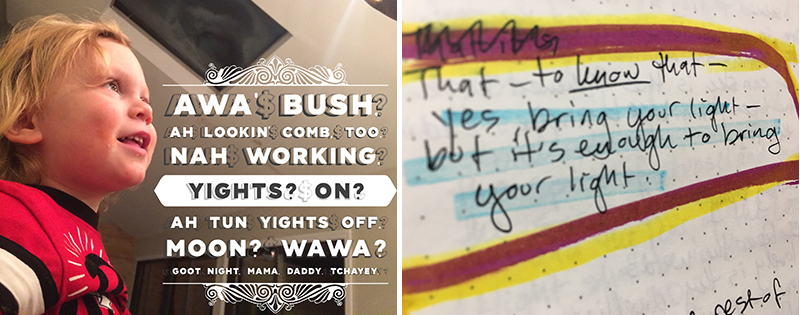 AWA'$ BUSH?
AH LOOKIN$ COMB$ TOO?
NAH$ WORKING?
YIGHTS?$ ON?
AH TUN YIGHTS OFF.
MOON? WAWA?
GOOT NIGHT, MAMA, DADDY, TCHAYEY.
That - to know that -
yes bring your light -
but it's enough to bring
your light.
rest of